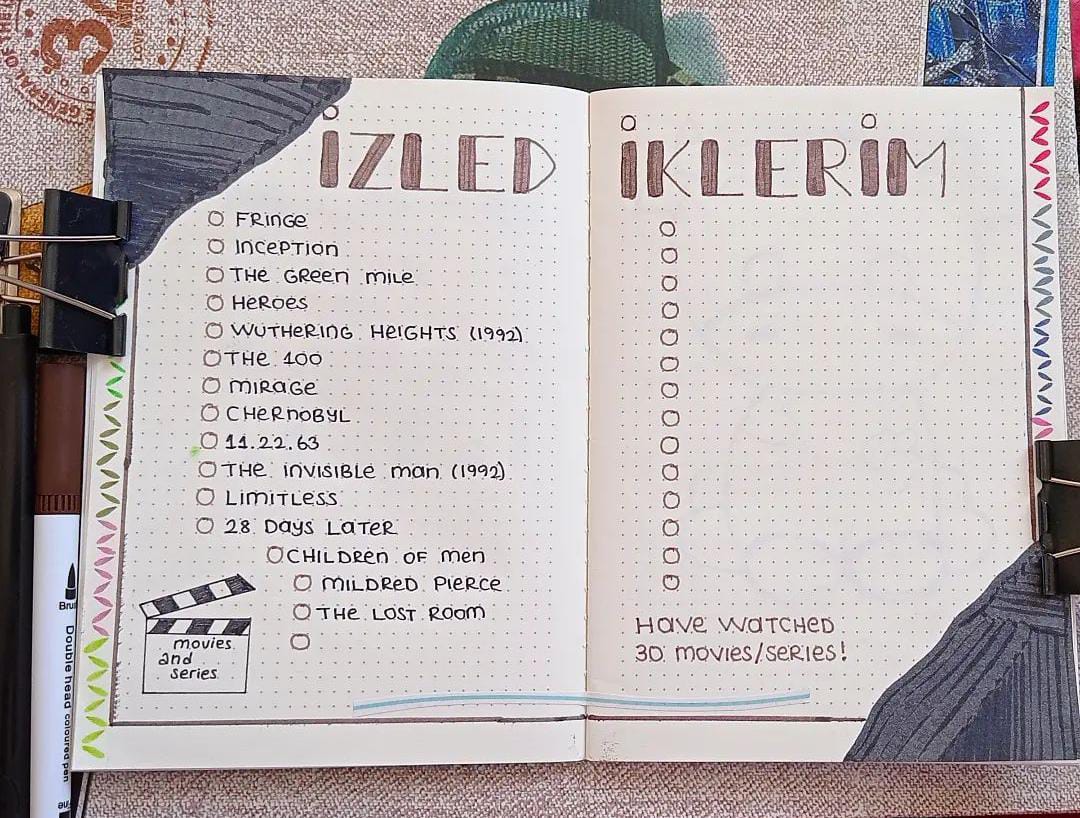 İZLED
FRINGE
INCEPTION
THE GREEN MILE
HEROES
WUTHERING HEIGHTS (1992)
THE 100
MIRAGE
CHERNOBYL
11.22.63
THE INVISIBLE MAN (1992)
LIMITLESS
28 DAYS LATER
CHILDREN OF MEN
MILDRED PIERCE
THE LOST ROOM
movies
and
series
İKLERİM
HAVE WATCHED
30 MOVIES/SERIES!
Double head coloured pen